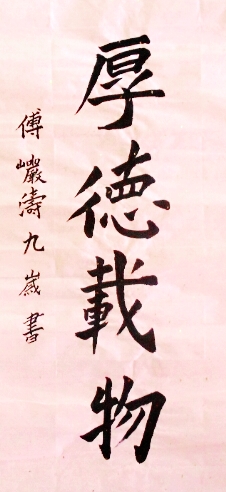 厚德載物
傅巖濤九歲書